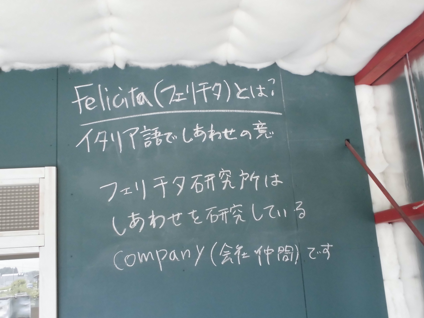 Felicita(フェリチタ)とは?
イタリア語でしあわせの意
フェリチタ研究所は
しあわせを研究している
company(会社 仲間)です